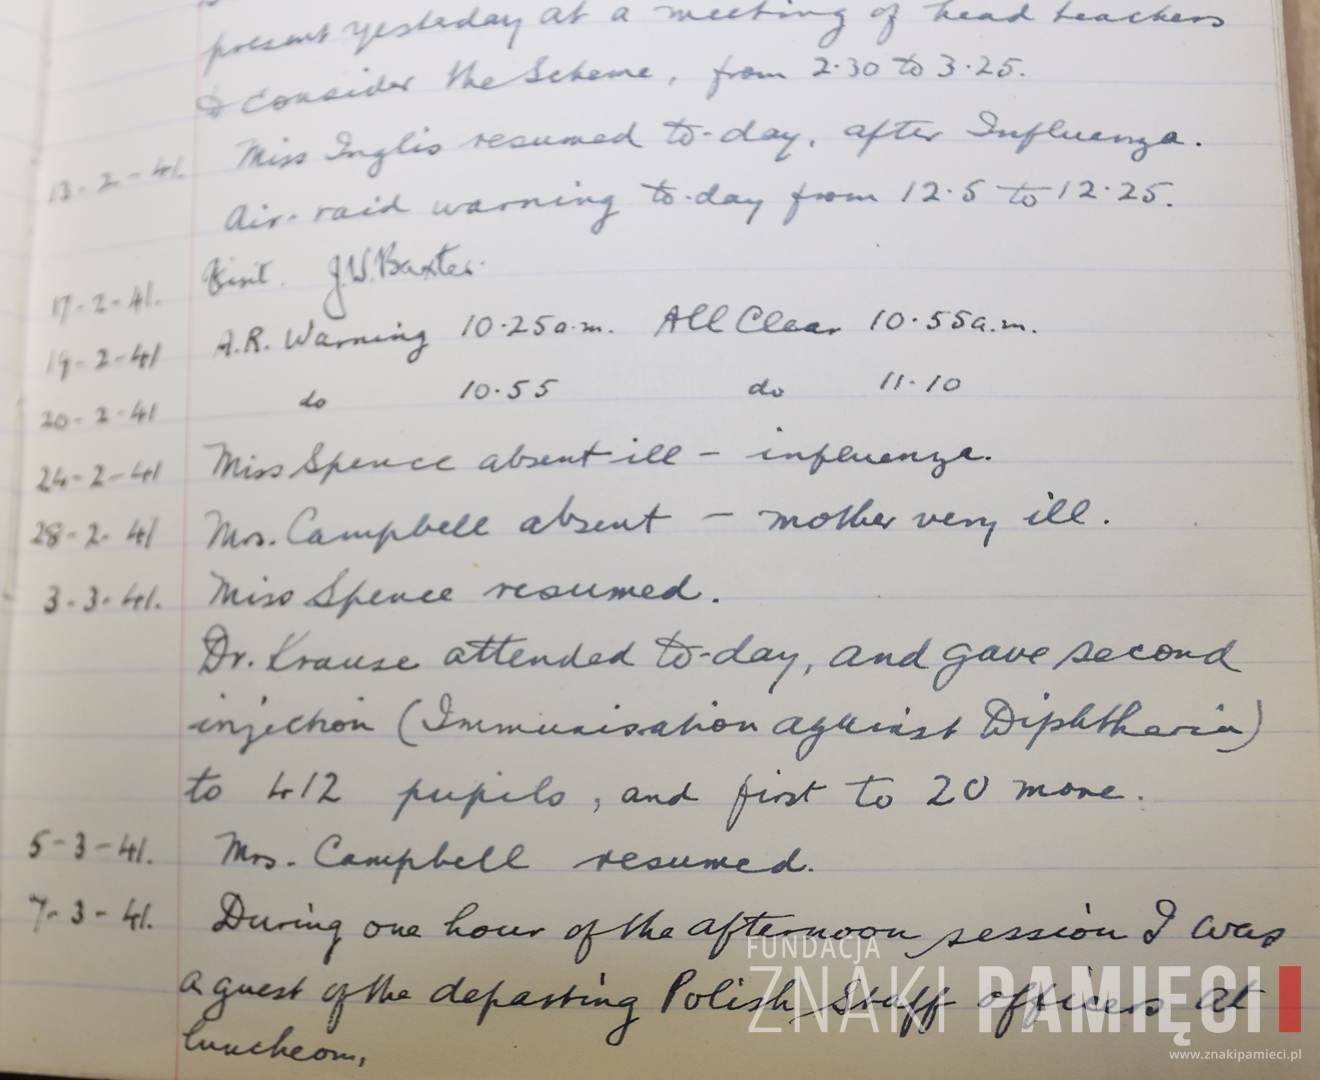 present yesterday at a meeting of head teachers
to consider the Scheme, from 2.30 to 3.25.
13-2-41. Miss Inglis resumed to-day, after Influenza.
Air-raid warning to-day from 12.5 to 12.25.
17-2-41. Visit. J.W. Baxter.
19-2-41 A.R. Warning 10.25 a.m. All Clear 10.55 a.m.
20-2-41 do 10.55 do 11.10
24-2-41 Miss Spence absent ill - influenza.
28-2-41 Mrs. Campbell absent - mother very ill.
3-3-41. Miss Spence resumed.
Dr. Krause attended to-day, and gave second
injection (Immunisation against Diphtheria)
to 412 pupils, and first to 20 more.
5-3-41. Mrs. Campbell resumed.
7-3-41. During one hour of the afternoon session I was
a guest of the departing Polish Staff officers at
luncheon,
FUNDACJA
ZNAKI PAMIĘCI
www.znakipamieci.pl